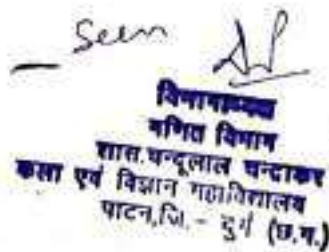 Seen
विभागाध्यक्ष
गणित विभाग
शास. चन्दूलाल चन्द्राकर
कला एवं विज्ञान महाविद्यालय
पाटन, जि. - दुर्ग (छ.ग.)